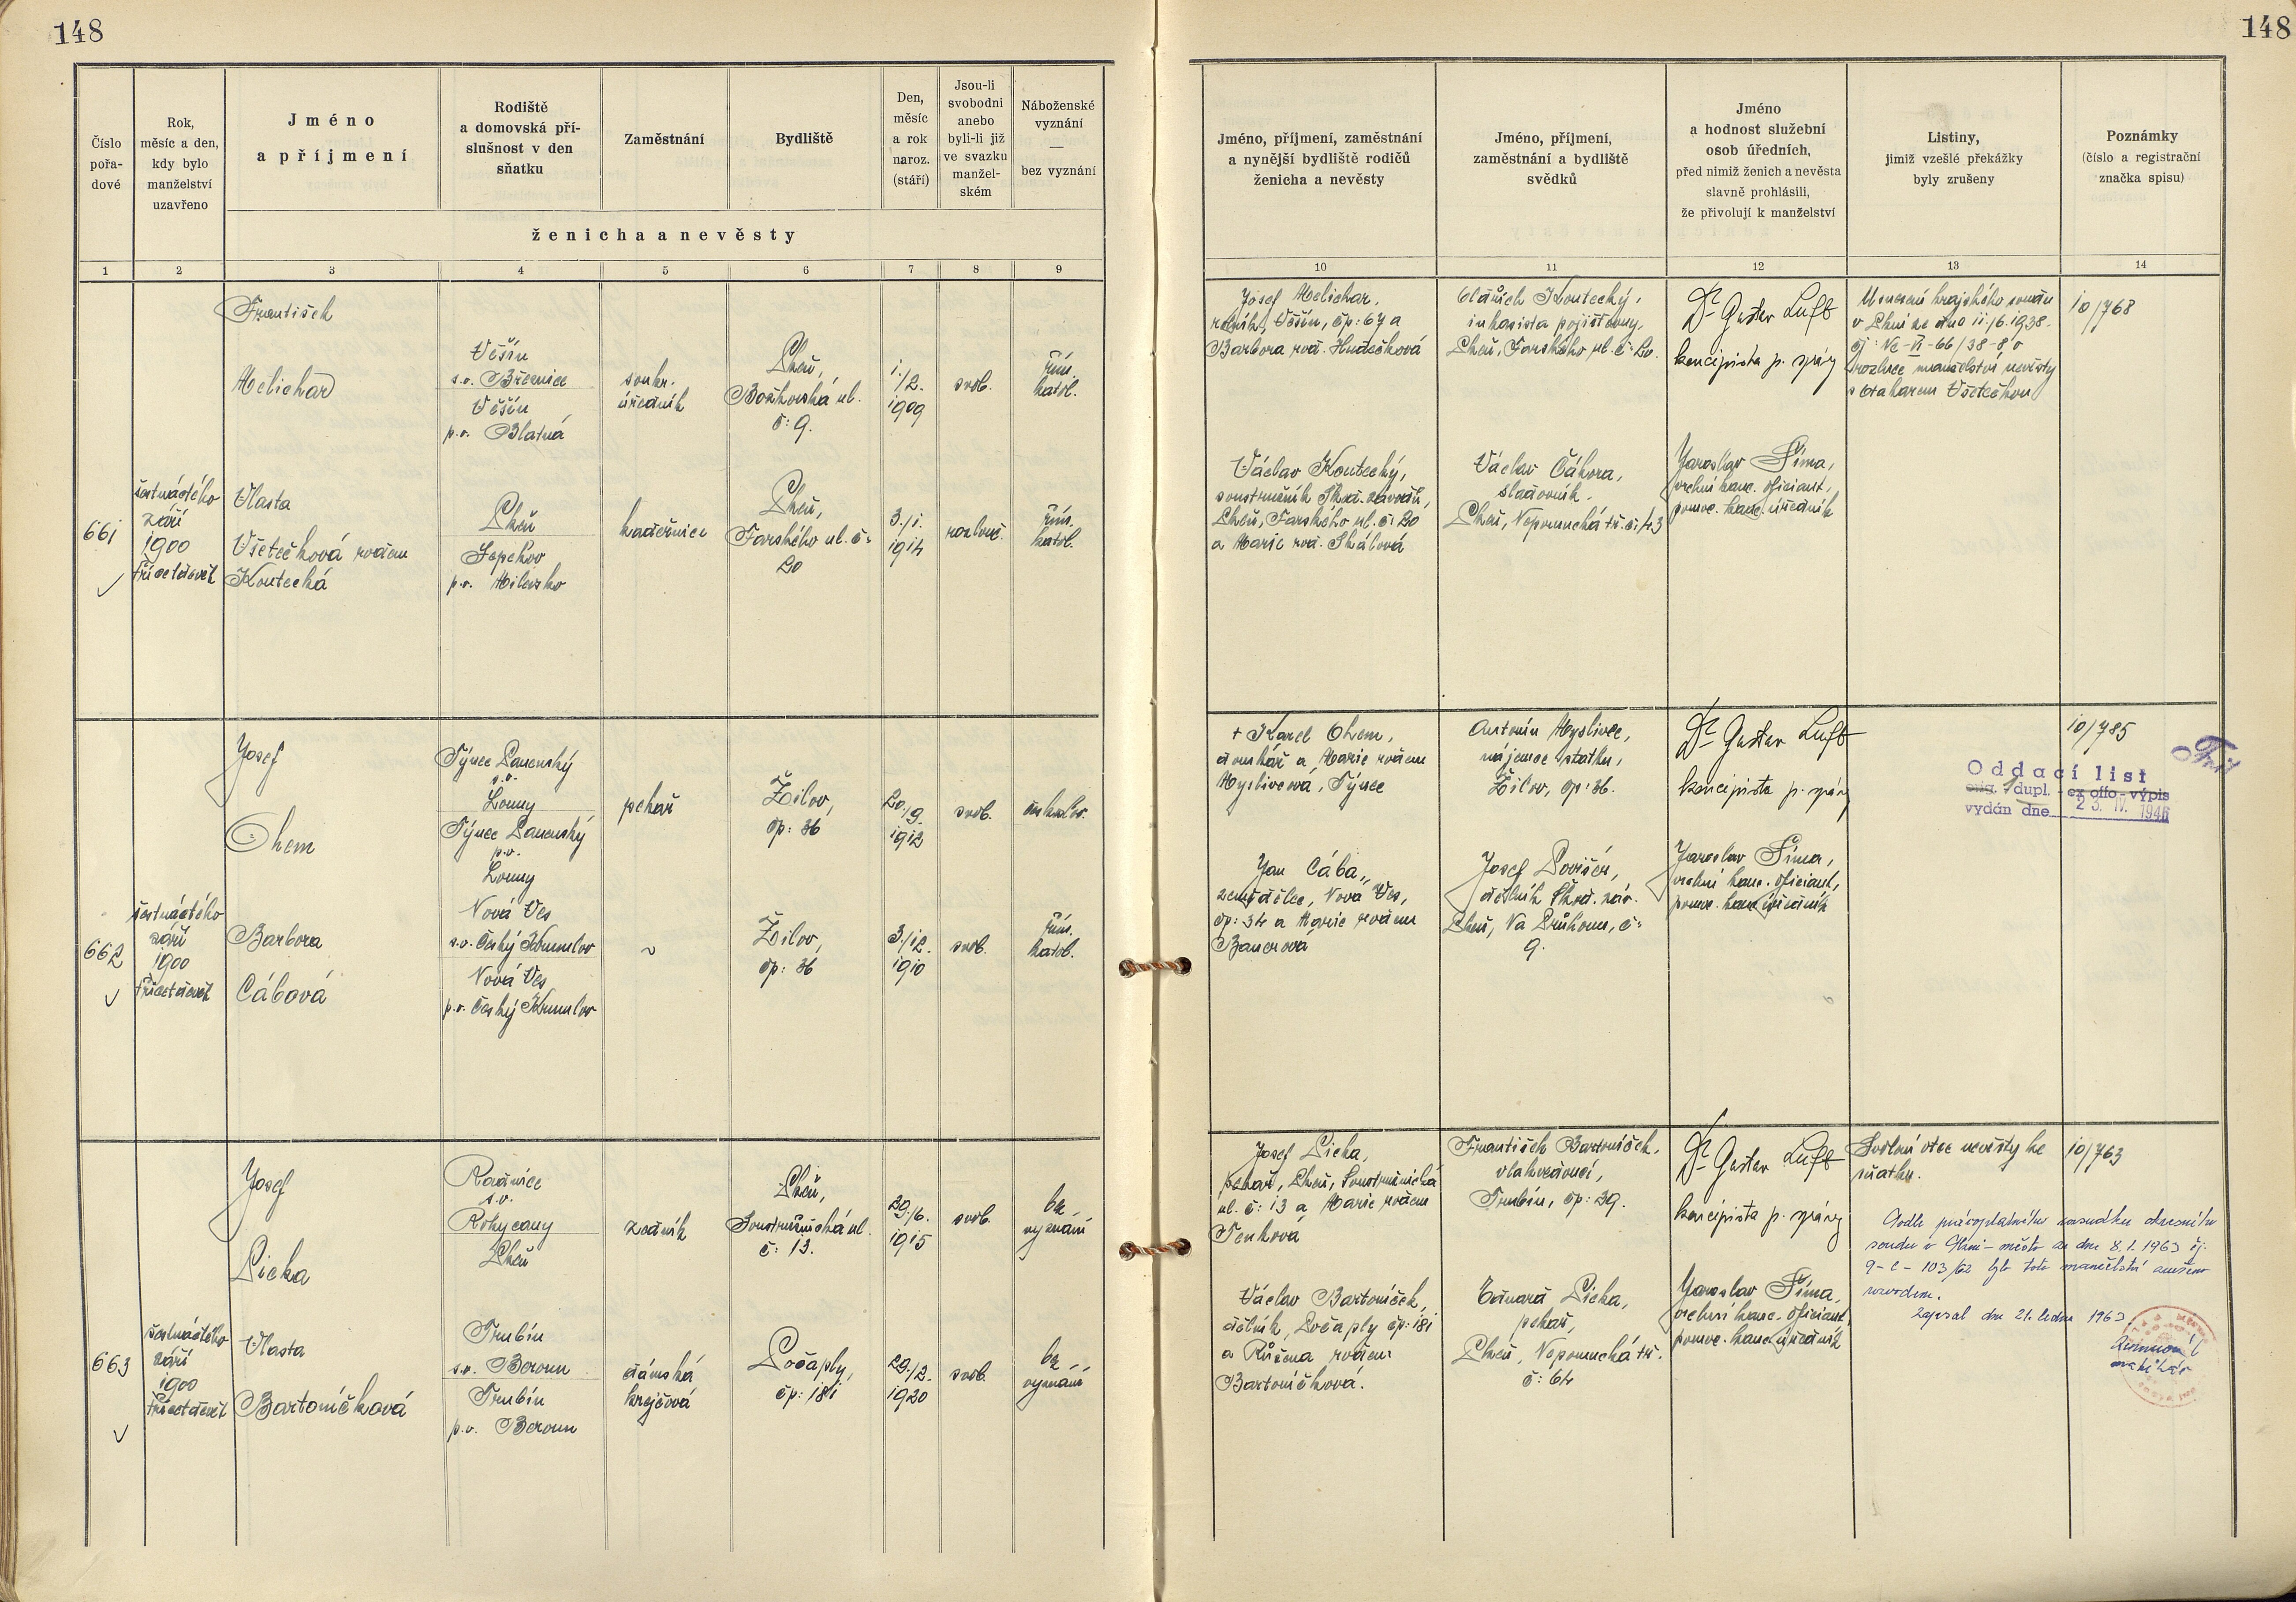 148
148
Číslo
pořa-
dové
Rok,
měsíc a den,
kdy bylo
manželství
uzavřeno
Jméno
a příjmení
Rodiště
a domovská pří-
slušnost v den
sňatku
Zaměstnání
Bydliště
Den,
měsíc
a rok
naroz.
(stáří)
Jsou-li
svobodni
anebo
byli-li již
ve svazku
manžel-
ském
Náboženské
vyznání
—
bez vyznání
ženicha a nevěsty
Jméno, příjmení, zaměstnání
a nynější bydliště rodičů
ženicha a nevěsty
Jméno, příjmení,
zaměstnání a bydliště
svědků
Jméno
a hodnost služební
osob úředních,
před nimiž ženich a nevěsta
slavně prohlásili,
že přivolují k manželství
Listiny,
jimiž vzešlé překážky
byly zrušeny
Poznámky
(číslo a registrační
značka spisu)
1 2 3 4 5 6 7 8 9 10 11 12 13 14
661
šestnáctého
září
1900
třicetdevět
František
Melichar
Věšín
s.o. Březnice
Věšín
p.o. Blatná
soukr.
úředník
Plzeň,
Božkovská ul.
č: 9.
1./2.
1909
svob.
řím.
katol.
Vlasta
Všetečková rozem
Koutecká
Plzeň
Sepekov
p.o. Milevsko
kadeřnice
Plzeň,
Farského ul. č:
20
3./1.
1914
rozlouč.
řím.
katol.
Josef Melichar,
rolník, Věšín, čp: 67 a
Barbora roz. Hudečková
Oldřich Koutecký,
inkasista pojišťovny,
Plzeň, Farského ul. č: 20.
Dr Gustav Luft
koncipista p. správy
Usnesení krajského soudu
v Plzni ze dne 11./6. 1938.
čj: Nc-VI-66/38-8 o
rozluce manželství nevěsty
s Otakarem Všetečkou
10/768
Václav Koutecký,
soustružník Škod. závodů,
Plzeň, Farského ul. č: 20
a Marie roz. Skálová
Václav Čáhora,
sladovník,
Plzeň, Nepomucká tř. č: 43
Jaroslav Šíma,
vrchní kanc. oficiant,
pomoc. kanc. úředník
662
šestnáctého
září
1900
třicetdevět
Josef
Ohem
Týnec Panenský
s.o.
Louny
Týnec Panenský
p.o.
Louny
pekař
Žilov,
čp: 36
20./9.
1912
svob.
českoslov.
Barbora
Cábová
Nová Ves
s.o. Český Krumlov
Nová Ves
p.o. Český Krumlov
~
Žilov,
čp: 36
3./12.
1910
svob.
řím.
katol.
+ Karel Ohem,
domkář a Marie rozem
Myslivcová, Týnec
Antonín Myslivec,
nájemce statku,
Žilov, čp: 36.
Dr Gustav Luft
koncipista p. správy
10/785
Oddací list
orig. 1 dupl. - ex offo - výpis
vydán dne 23. IV. 1946
Jan Cába,
zemědělec, Nová Ves,
čp: 34 a Marie rozem
Bauerová
Josef
dělník Škod. záv.
Plzeň, Na Průhonu, č:
9.
Jaroslav Šíma,
vrchní kanc. oficiant,
pomoc. kanc. úředník
663
šestnáctého
září
1900
třicetdevět
Josef
Picka
Radnice
s.o.
Rokycany
Plzeň
zedník
Plzeň,
Soustružnická ul.
č: 13.
29./6.
1915
svob.
bez
vyznání
Vlasta
Bartoníčková
Trubín
s.o. Beroun
Trubín
p.o. Beroun
dámská
krejčová
Počaply,
čp: 181
29./2.
1920
svob.
bez
vyznání
Josef Picka,
pekař, Plzeň, Soustružnická
ul. č: 13 a Marie rozem
Tenková
František Bartoníček,
vlakvedoucí,
Trubín, čp: 39.
Dr Gustav Luft
koncipista p. správy
Svolení otce nevěsty ke
sňatku.
10/763
Podle pravoplatného rozsudku okresního
soudu v Plzni-město ze dne 8.1.1963 čj.
9-C-103/62 bylo toto manželství zrušeno
rozvodem.
Zapsal dne 21. ledna 1963
matrikář
Václav Bartoníček,
dělník, Počaply čp: 181
a Růžena rozem
Bartoníčková.
Eduard Picka,
pekař,
Plzeň, Nepomucká tř.
č: 64
Jaroslav Šíma,
vrchní kanc. oficiant,
pomoc. kanc. úředník